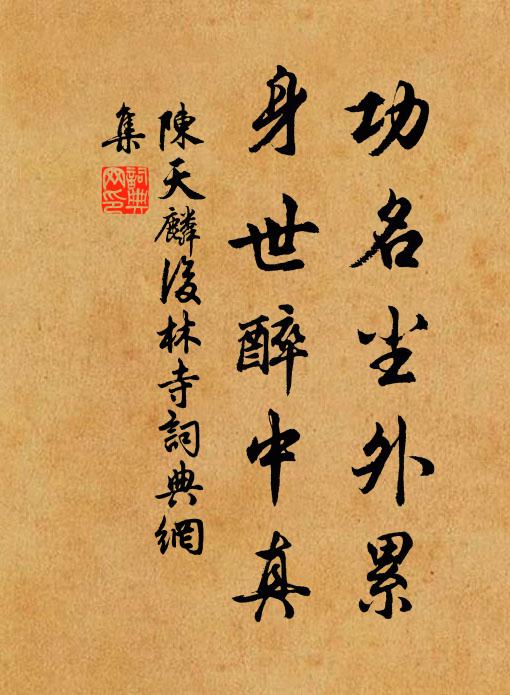 功名尘外累
身世醉中真
陳天麟後林寺詞典網
集
詞典网印